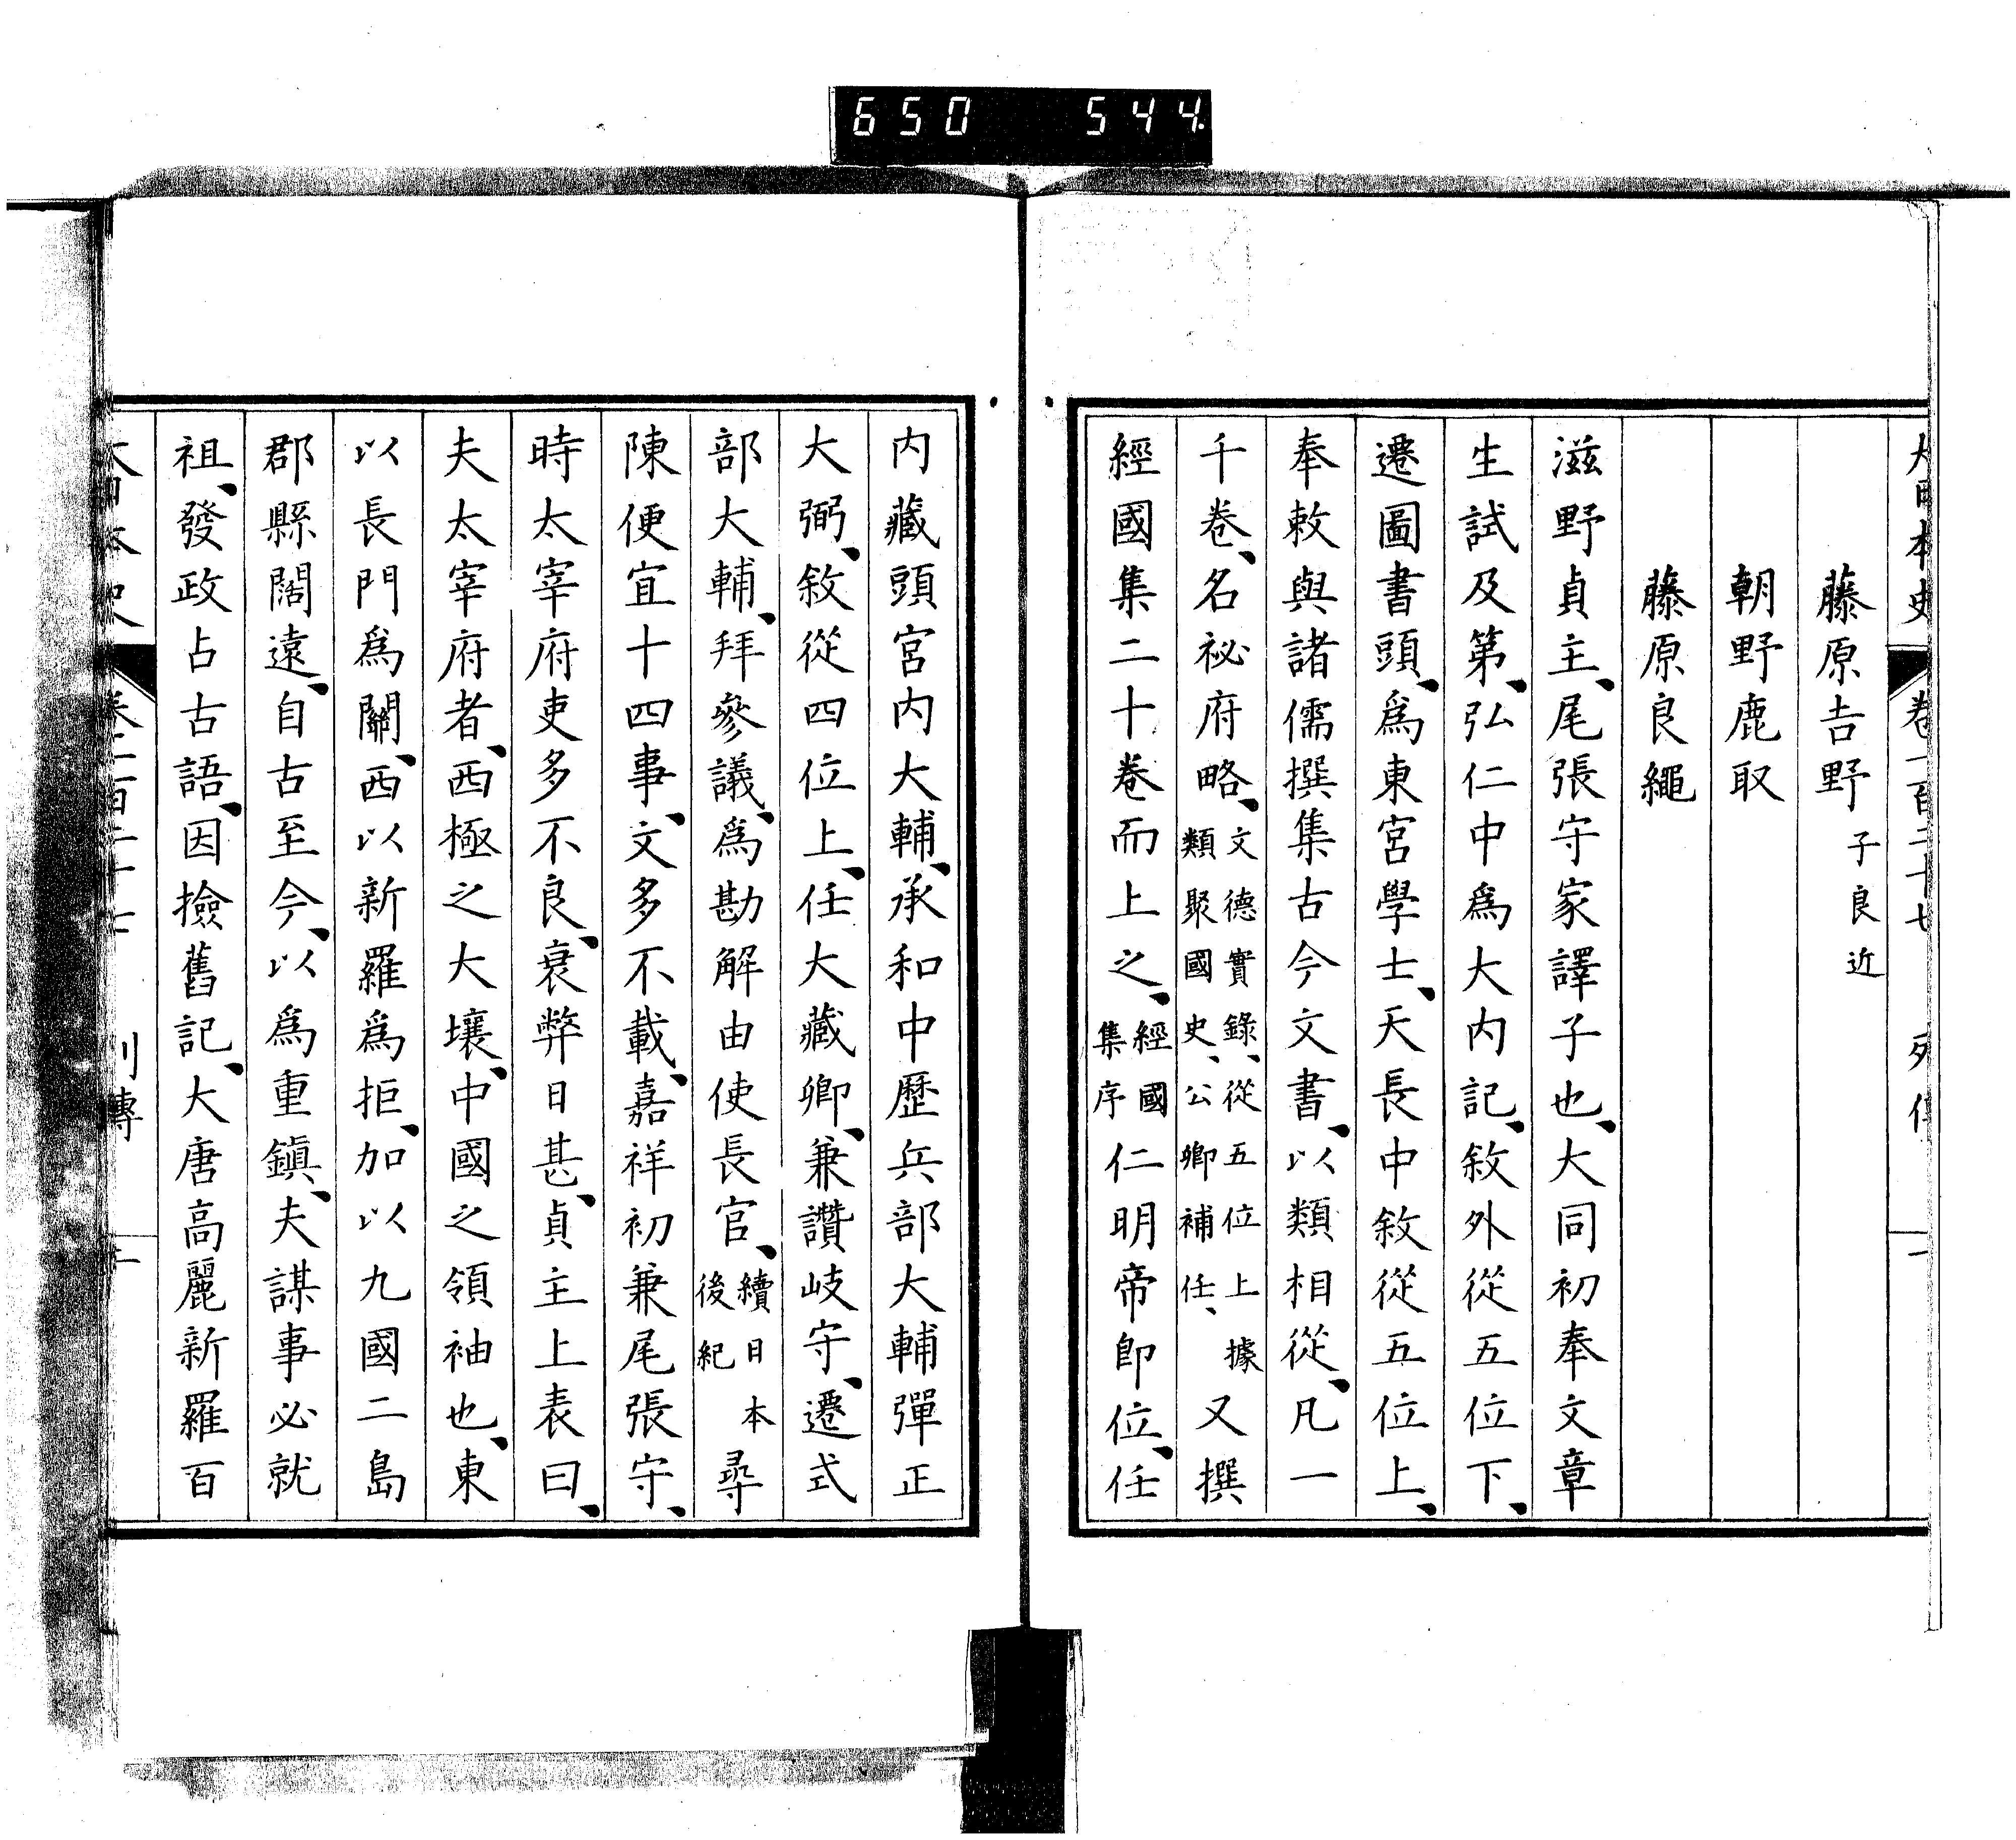 650 544
大日本史 卷一百二十七 列傳 一
藤原吉野 子良近
朝野鹿取
藤原良繩
滋野貞主、尾張守家譯子也、大同初奉文章
生試及第、弘仁中爲大内記、敘外從五位下、
遷圖書頭、爲東宮學士、天長中敘從五位上、
奉敕與諸儒撰集古今文書、以類相從、凡一
千卷、名祕府略、文德實錄、從五位上據類聚國史、公卿補任、又撰
經國集二十卷而上之、經國集序仁明帝卽位、任
内藏頭宮内大輔、承和中歷兵部大輔彈正
大弼、敘從四位上、任大藏卿、兼讚岐守、遷式
部大輔、拜參議、爲勘解由使長官、續日本後紀尋
陳便宜十四事、文多不載、嘉祥初兼尾張守、
時太宰府吏多不良、衰弊日甚、貞主上表曰、
夫太宰府者、西極之大壤、中國之領袖也、東
以長門爲關、西以新羅爲拒、加以九國二島
郡縣闊遠、自古至今、以爲重鎭、夫謀事必就
祖、發政占古語、因撿舊記、大唐高麗新羅百
大日本史 卷一百二十七 列傳 二